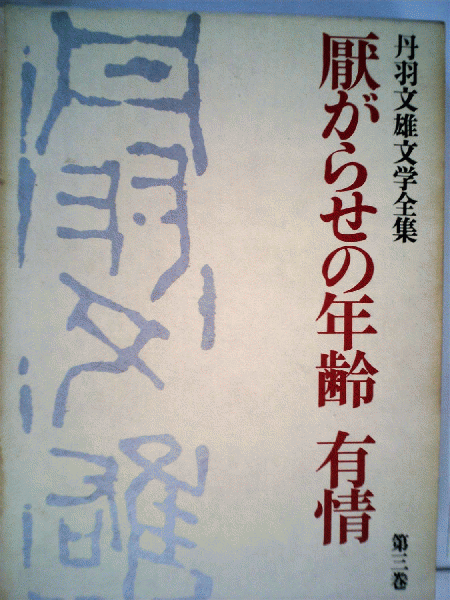 丹羽文雄文学全集
厭がらせの年齢 有情
第三巻
丹羽文雄